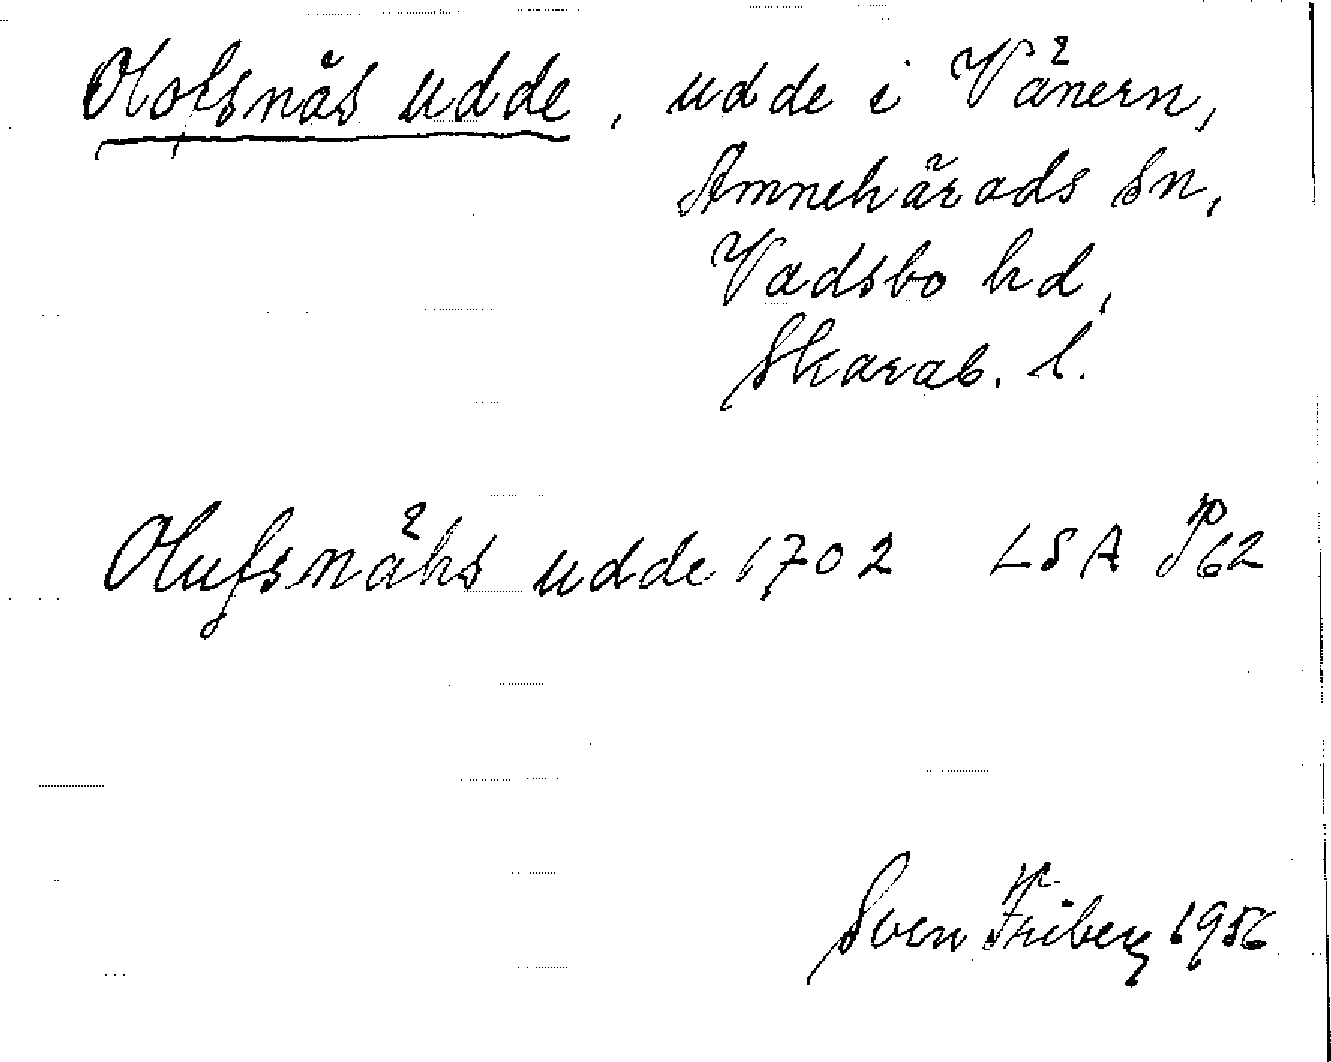 Olofsnäs udde, udde i Vänern,
Amnehärads sn,
Vadsbo hd,
Skarab. l.
Olufsnähs udde 1702 LSA P62
Sven Friberg 1956